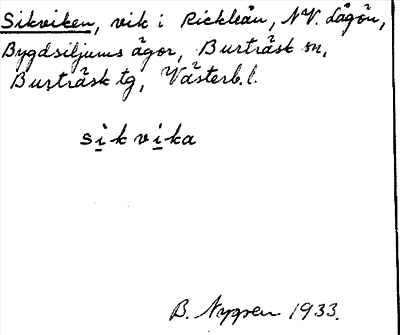 Sikviken, vik i Rickleån, N.V. Lågön,
Bygdsiljums ägor, Burträsk sn,
Burträsk tg, Västerb.l.
sikvika
B. Nygren 1933.